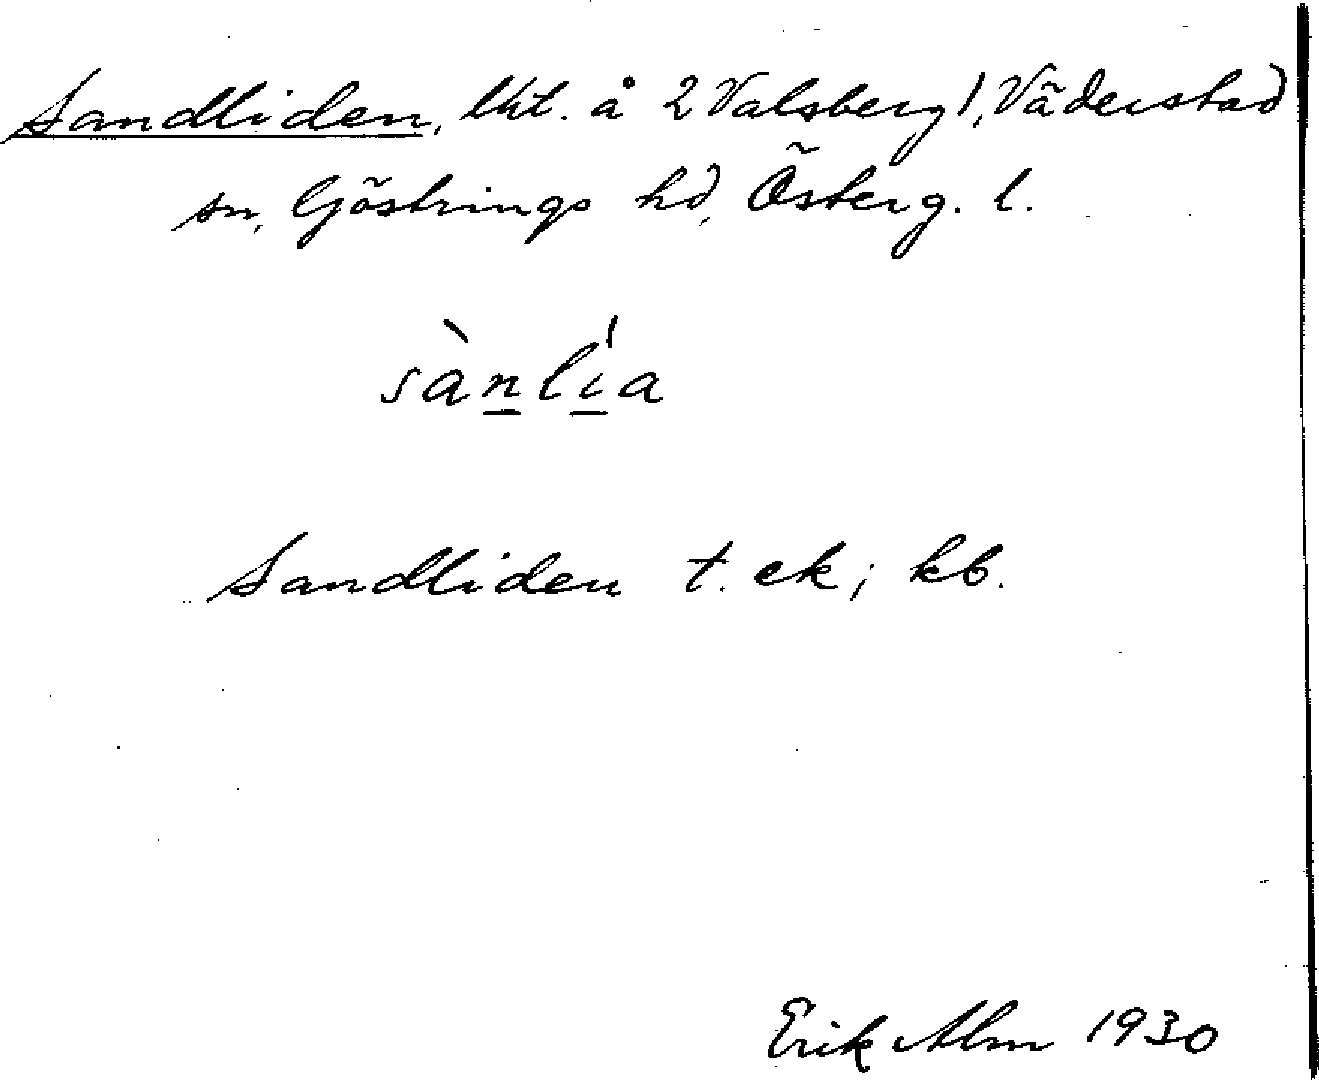 Sandliden, lht. å 2 Valsberg 1, Väderstad
sn, Göstrings hd, Österg. l.
sànlía
Sandliden t. ek; kb.
Erik Alm 1930